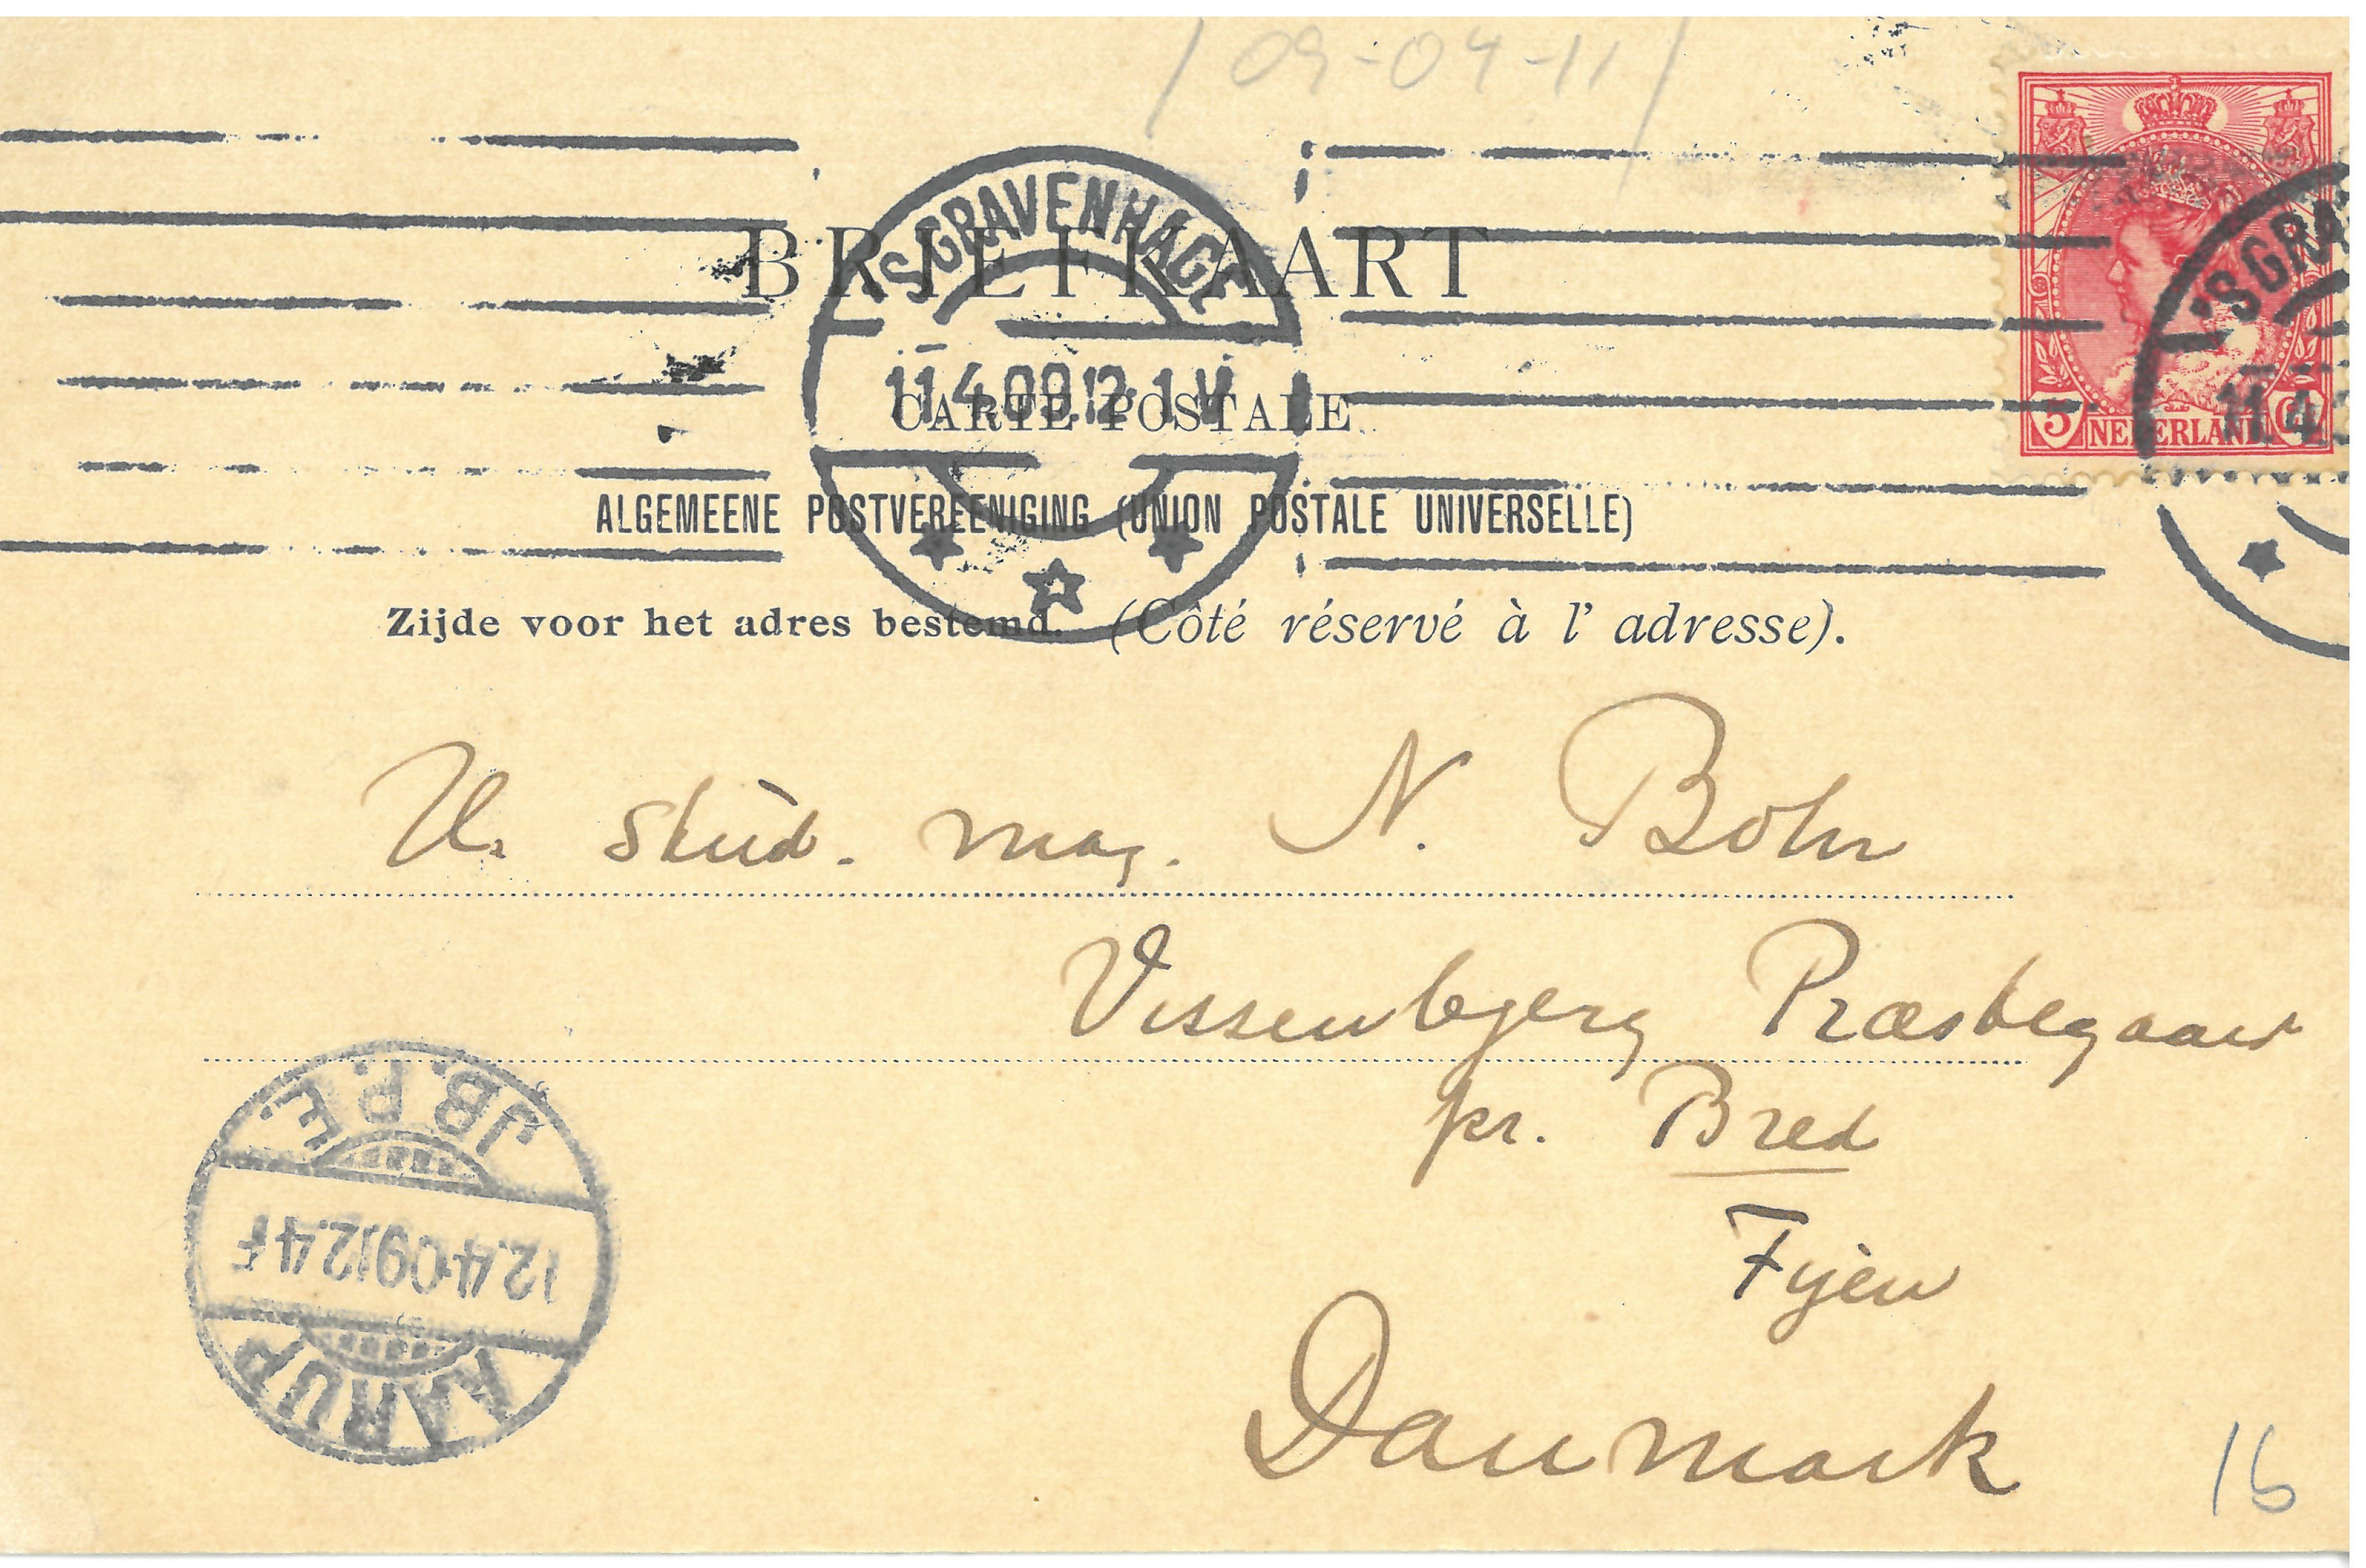 / 09-04-11 /
'SGRAVENHAGE
11.4.09.12-1 V
'SGRA
11.4
5 NEDERLAND Ct
BRIEFKAART
CARTE POSTALE
ALGEMEENE POSTVEREENIGING (UNION POSTALE UNIVERSELLE)
Zijde voor het adres bestemd. (Côté réservé à l' adresse).
Hr. stud. mag. N. Bohr
Vissenbjerg Præstegaard
pr. Bred
Fyen
Danmark
AARUP
12.4.09 12.4 F
JB.P.E.
16